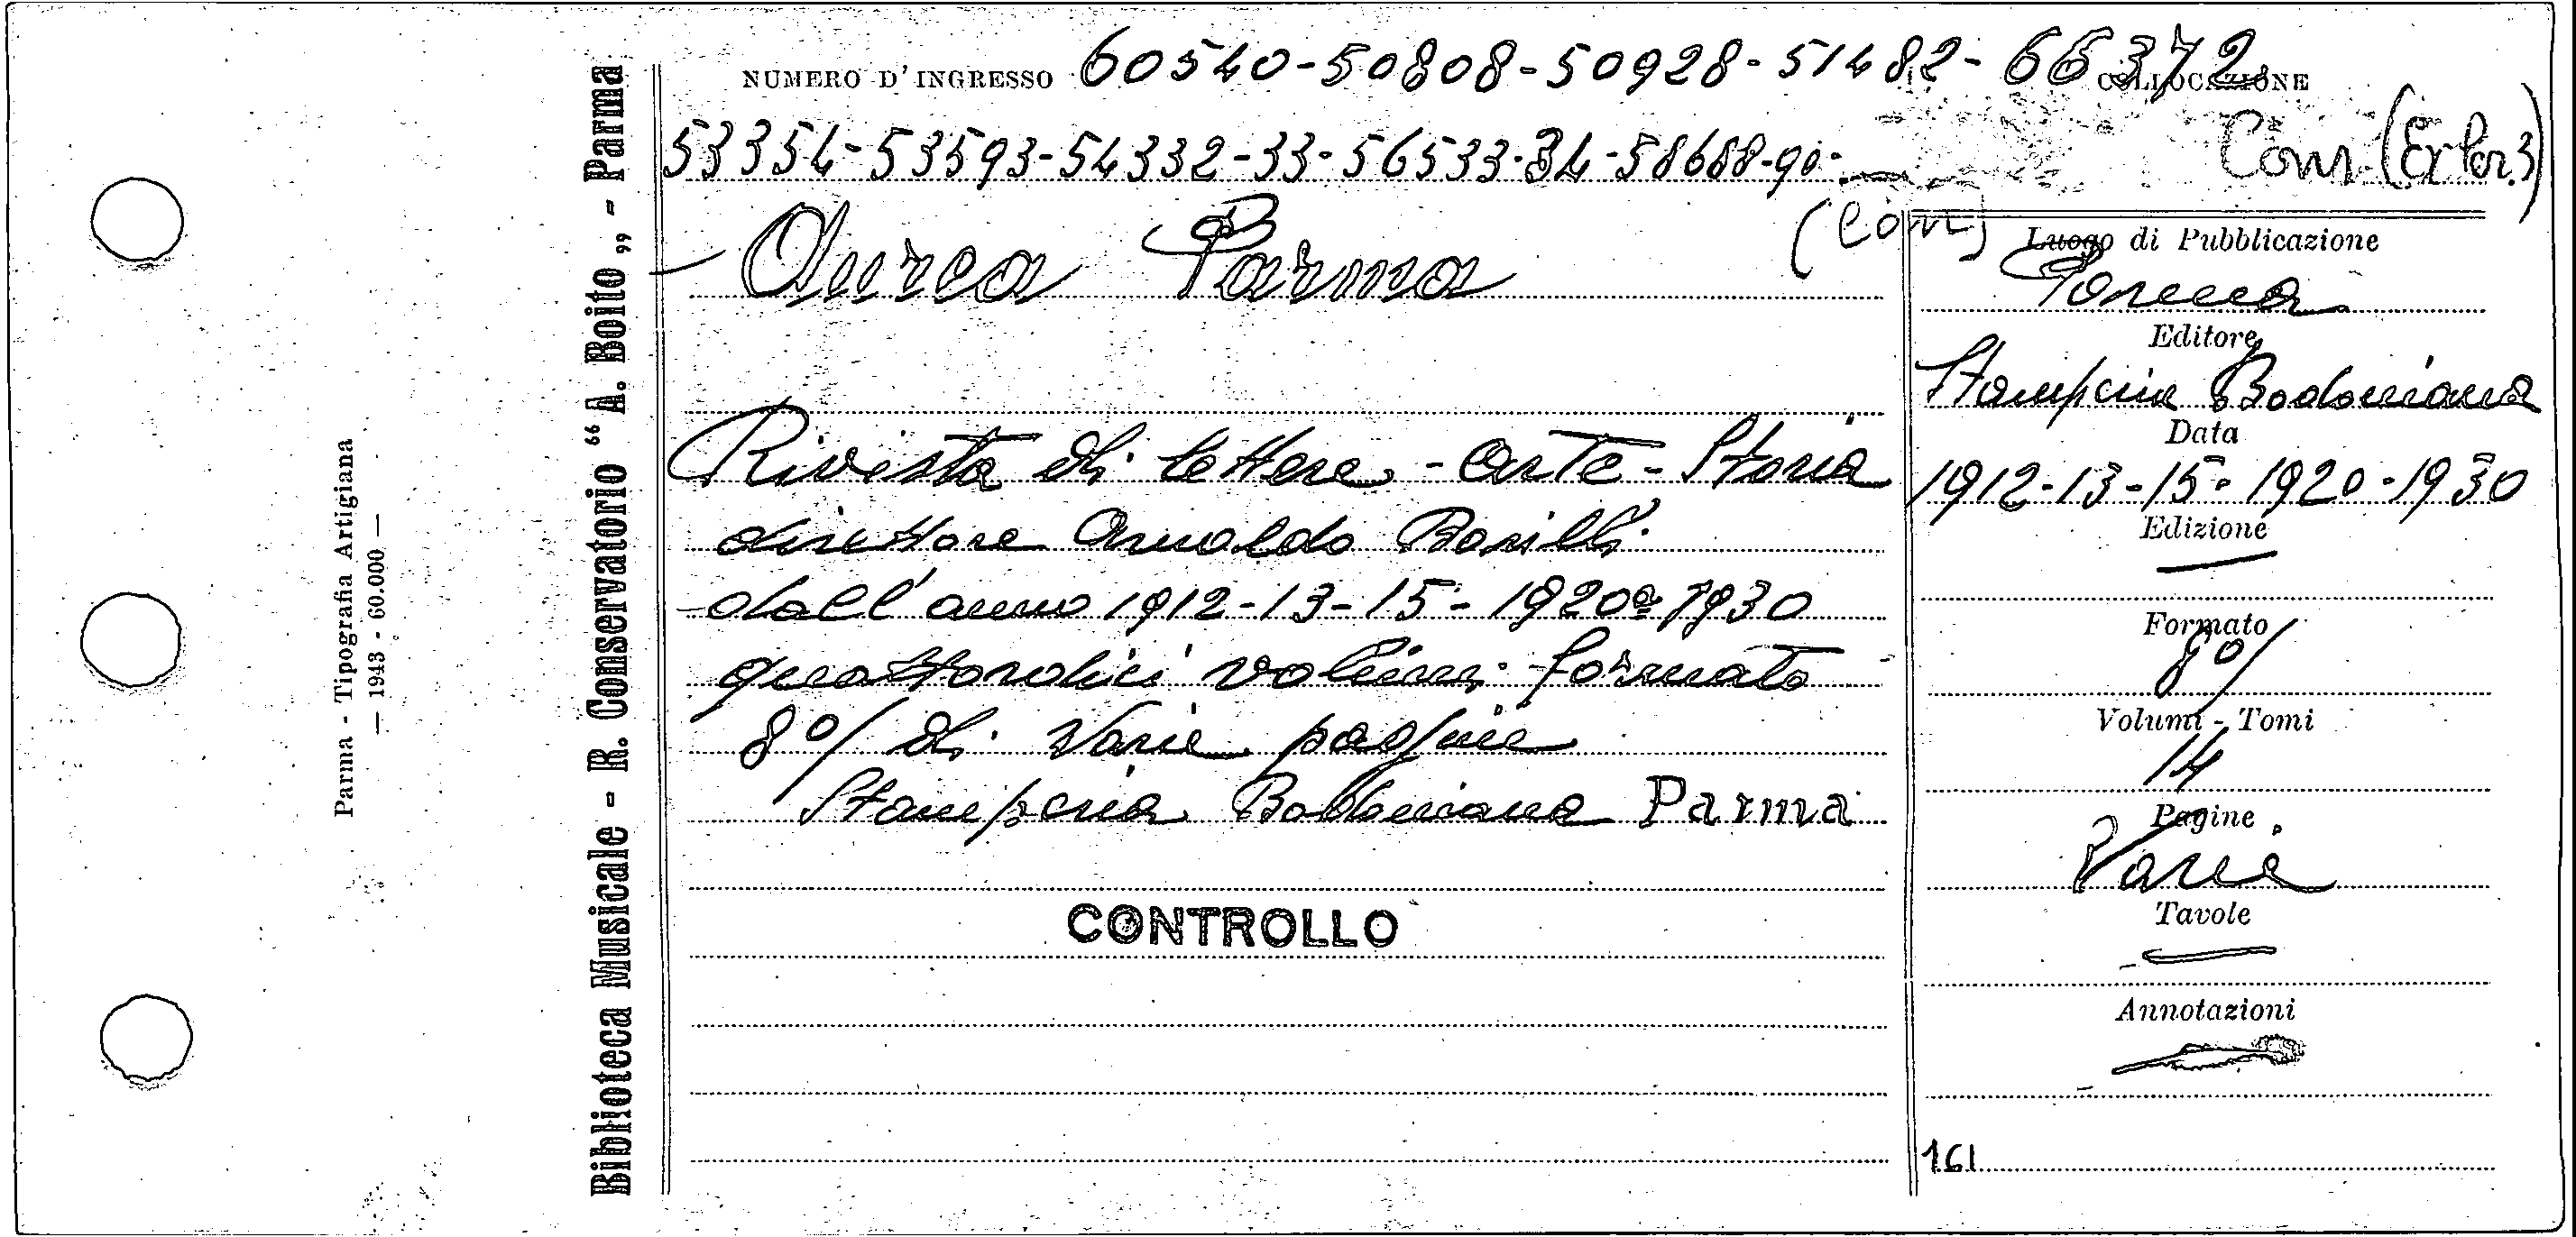 Parma - Tipografia Artigiana
— 1943 - 60.000 —
Biblioteca Musicale - R. Conservatorio “A. Boito„ - Parma
NUMERO D'INGRESSO 60540-50808-50928-51482-66372
COLLOCAZIONE
53354-53593-54332-33-56533-34-58688-90-
Com
(Com)
Aurea Parma
Rivista di lettere - Arte - Storia
direttore Arnaldo Barilli
dall'anno 1912-13-15-1920 1930
quattordici volumi formato
8°/ di varie pagine
Stamperia Bodoniana Parma
CONTROLLO
Luogo di Pubblicazione
Parma
Editore
Stamperia Bodoniana
Data
1912-13-15-1920-1930
Edizione
—
Formato
8°/
Volumi - Tomi
14
Pagine
Varie
Tavole
—
Annotazioni
161